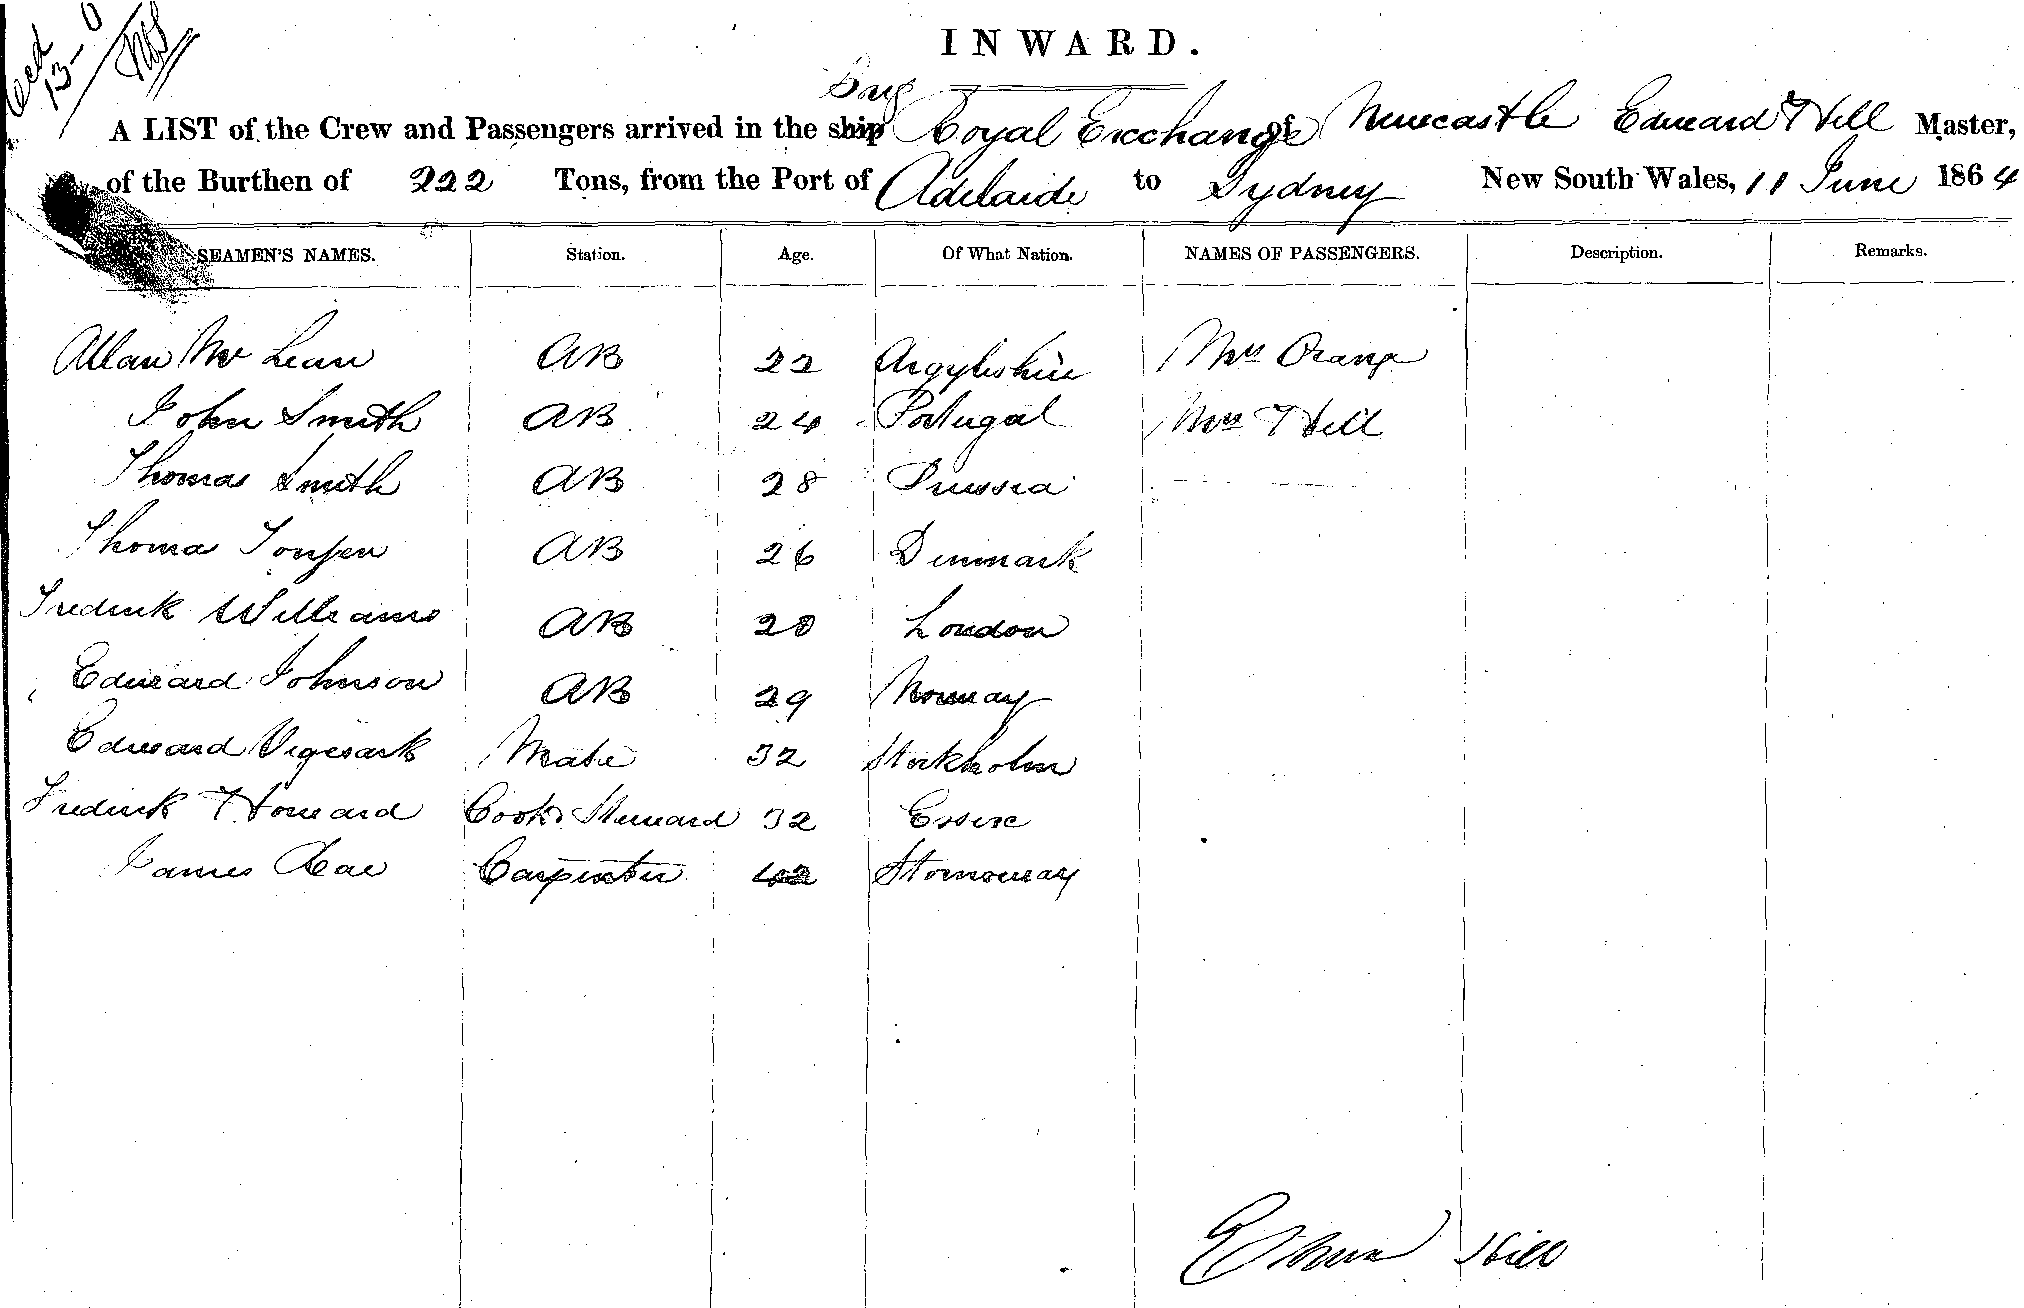 INWARD.
Brig
A LIST of the Crew and Passengers arrived in the ship Royal Exchange of Newcastle Edward Hill Master,
of the Burthen of 222 Tons, from the Port of Adelaide to Sydney New South Wales, 11 June 1864
SEAMEN'S NAMES. Station. Age. Of What Nation. NAMES OF PASSENGERS. Description. Remarks.
Allan Mc Lean AB 22 Argyleshire Mrs
John Smith AB 24 Portugal Mrs Hill
Thomas Smith AB 28 Prussia
Thoma AB 26 Denmark
Fredrick Williams AB 20 London
Edward Johnson AB 29 Norway
Edward Vigesark Mate 32 Stockholm
Fredrick Howard Cook & Steward 32 Essex
James Rae Carpenter 42 Stornoway
Hill